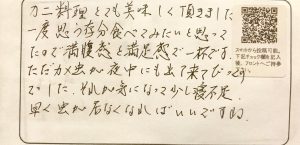 カニ料理とても美味しく頂きました
一度思う存分食べてみたいと思って
たので満腹感と満足感で一杯です。
ただカメ虫が夜中にも出て来てびっくり
でした。それが気になって少し寝不足。
早く虫が居なくなればいいですね。
スマホから投稿可能。
下記チェック欄を記入
後、フロントへご持参